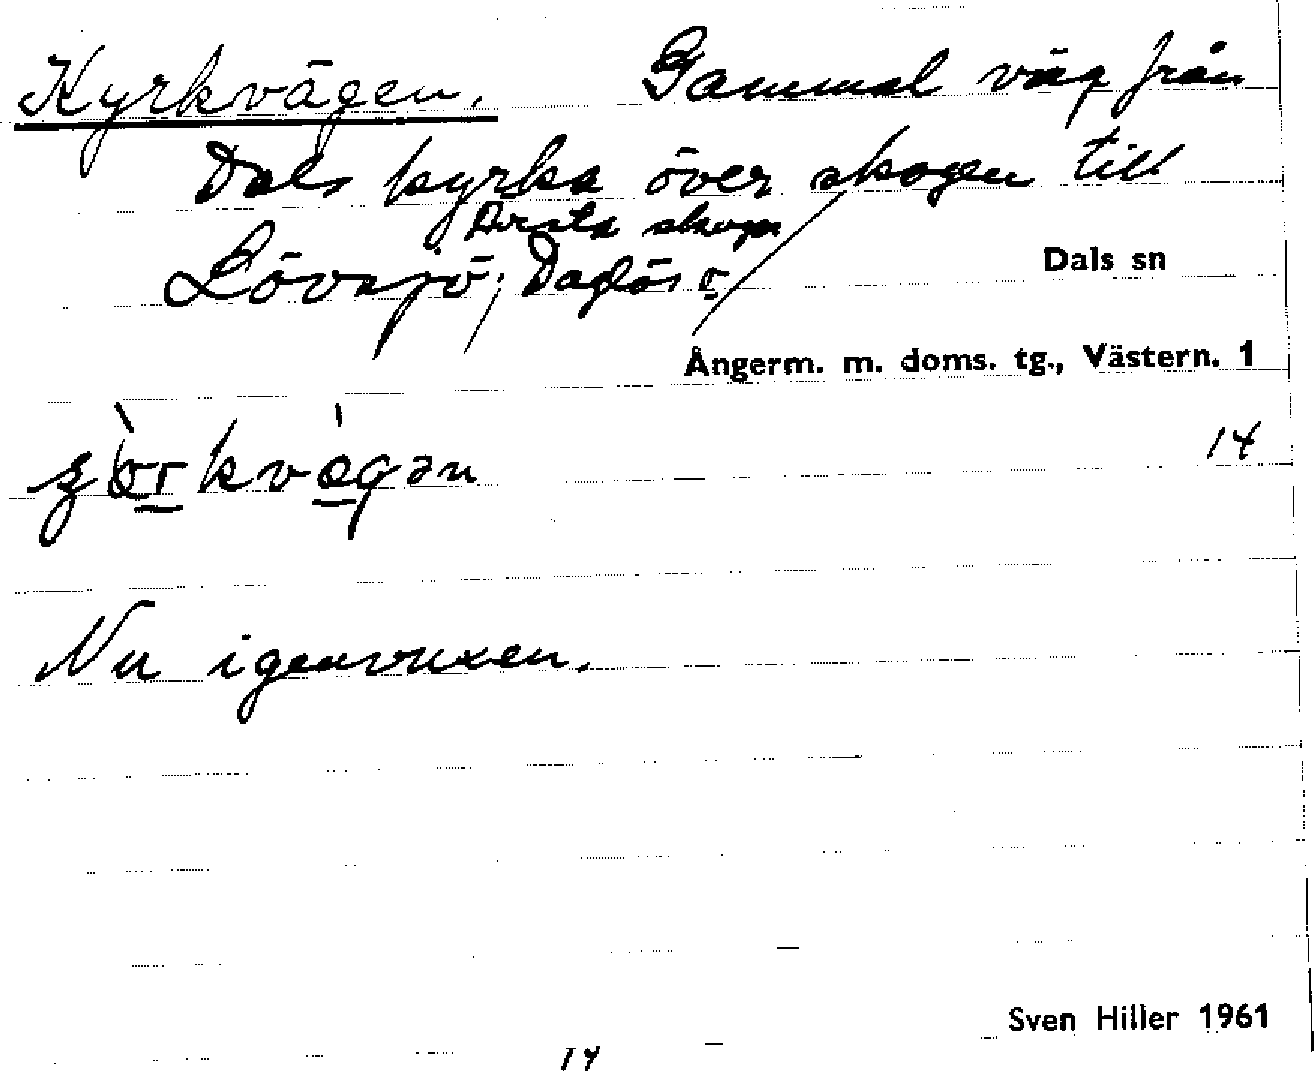 Kyrkvägen. Gammal väg från
Dals kyrka över skogen till
Årsta skoges
Lövsjö;
Dals sn
Ångerm. m. doms. tg., Västern. 1
14
Nu igenvuxen.
Sven Hiller 1961
14